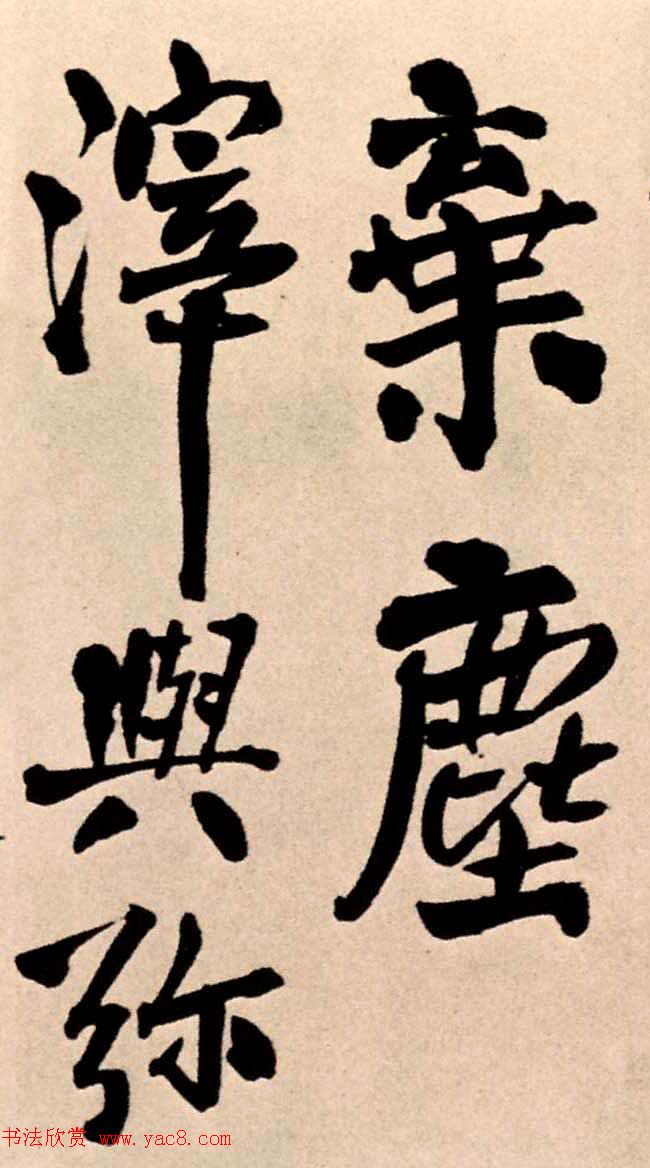 棄塵
滓與弥
书法欣赏 www.yac8.com